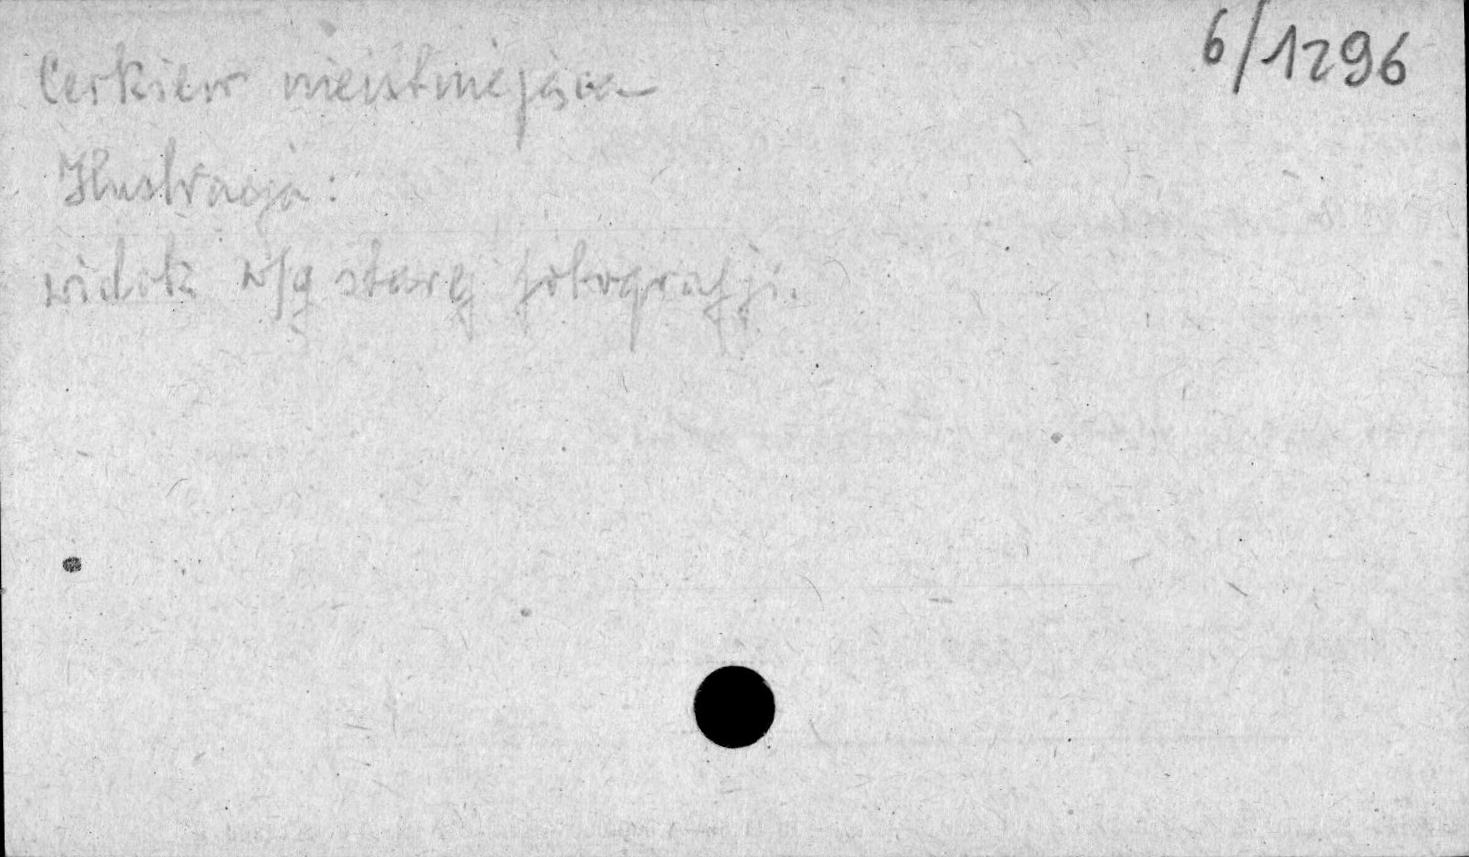 6/1296
Cerkiew nieistniejąca
Ilustracja:
widok w/g starej fotografji.